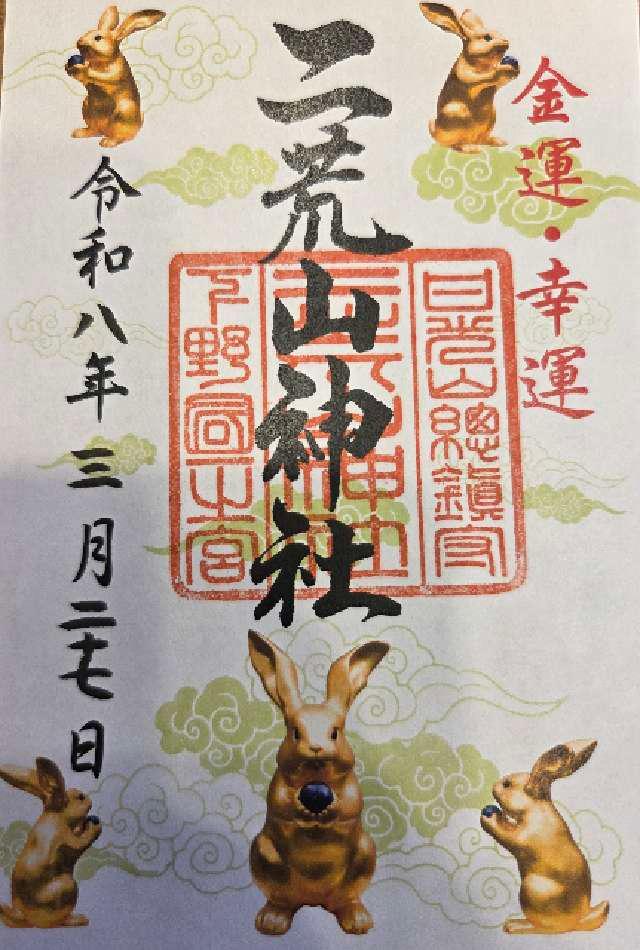 金運・幸運
二荒山神社
日光山總鎮守
二荒山神社
下野国一之宮
令和八年三月二十七日